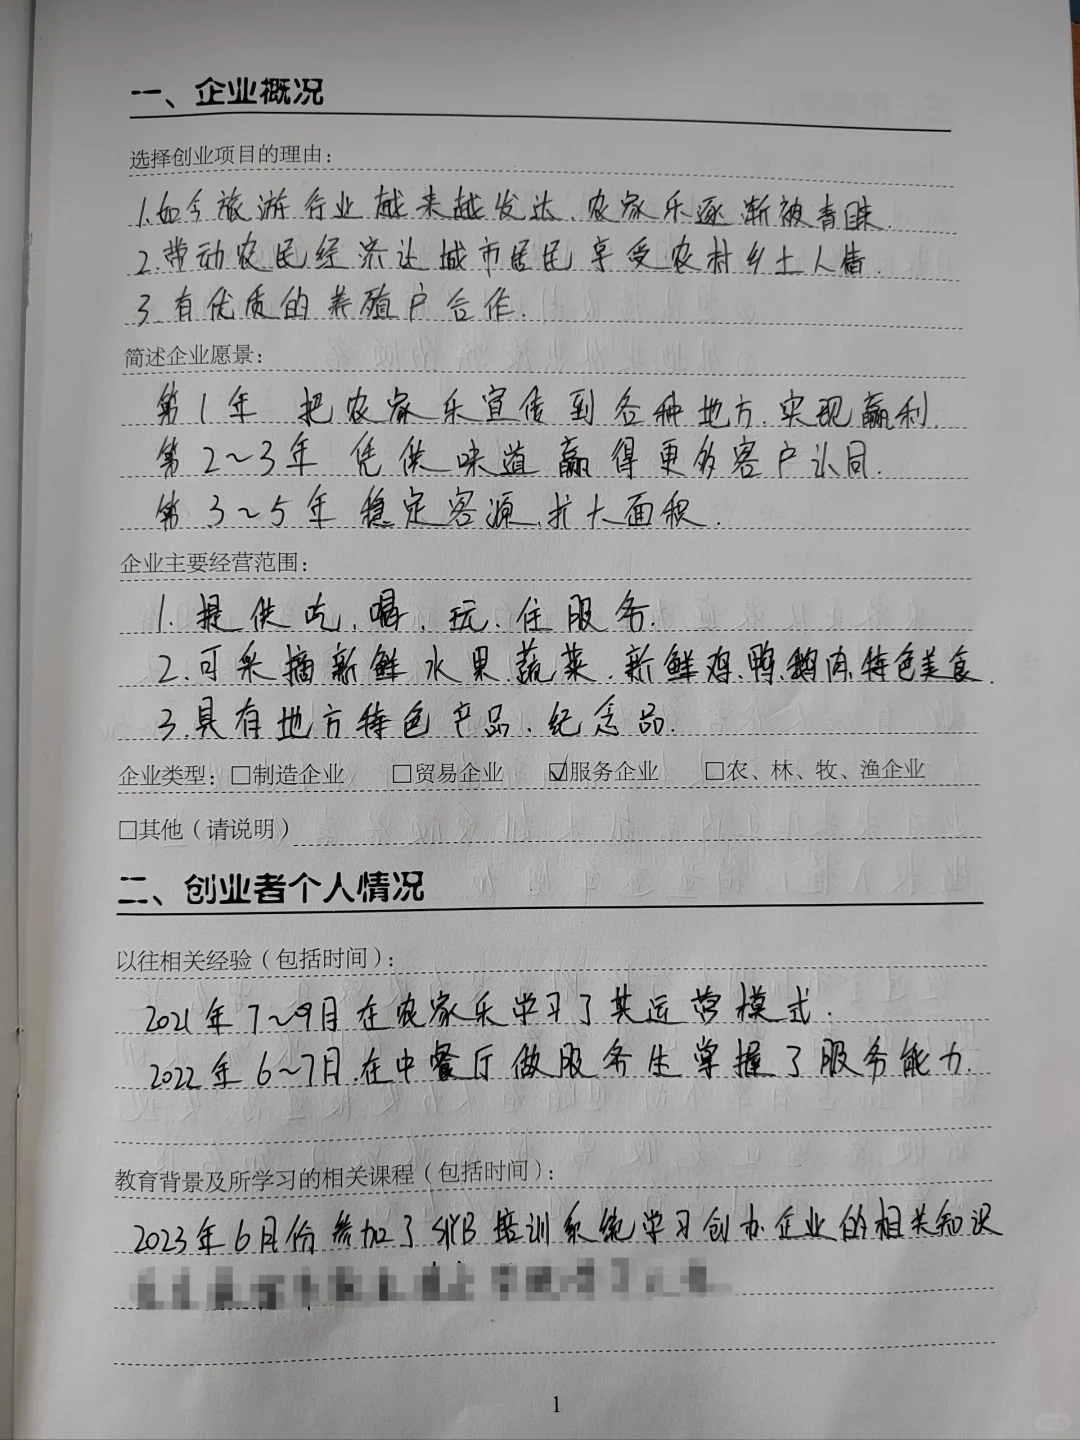 一、企业概况
选择创业项目的理由：
1.如今旅游行业越来越发达、农家乐逐渐被青睐.
2.带动农民经济让城市居民享受农村乡土人情.
3.有优质的养殖户合作.
简述企业愿景：
第1年 把农家乐宣传到各种地方、实现赢利.
第2~3年 凭供味道赢得更多客户认同.
第3~5年 稳定客源、扩大面积.
企业主要经营范围：
1.提供吃、喝、玩、住服务.
2.可采摘新鲜水果蔬菜、新鲜鸡、鸭、鹅肉、特色美食.
3.具有地方特色产品、纪念品.
企业类型：□制造企业 □贸易企业 ☑服务企业 □农、林、牧、渔企业
□其他（请说明）
二、创业者个人情况
以往相关经验（包括时间）：
2021年7~9月在农家乐学习了其运营模式.
2022年6~7月、在中餐厅做服务生掌握了服务能力.
教育背景及所学习的相关课程（包括时间）：
2023年6月份参加了SYB培训系统学习创办企业的相关知识
1